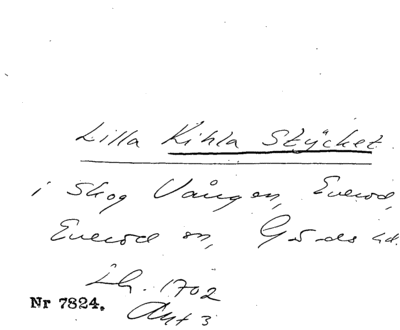 Lilla Kihla Stÿcket
i Skog Vången, Everöd,
Everöd sn, Gärds hd.
Lh. 1702
Akt 3
Nr 7824.